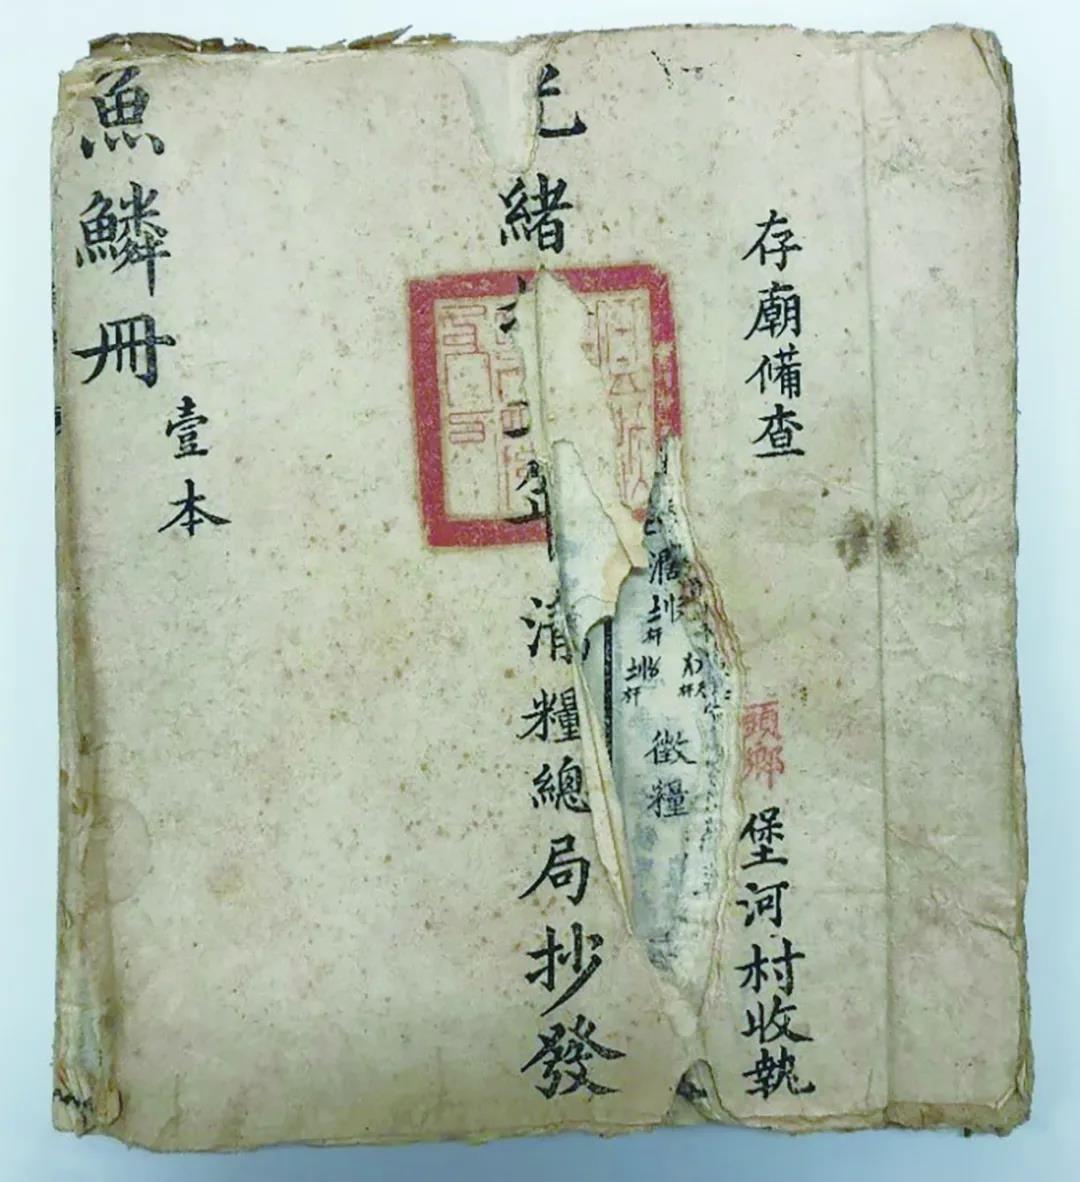 存廟備查
頭鄉
堡河村收執
光緒
清糧總局抄發
徵糧
魚鱗冊
壹本